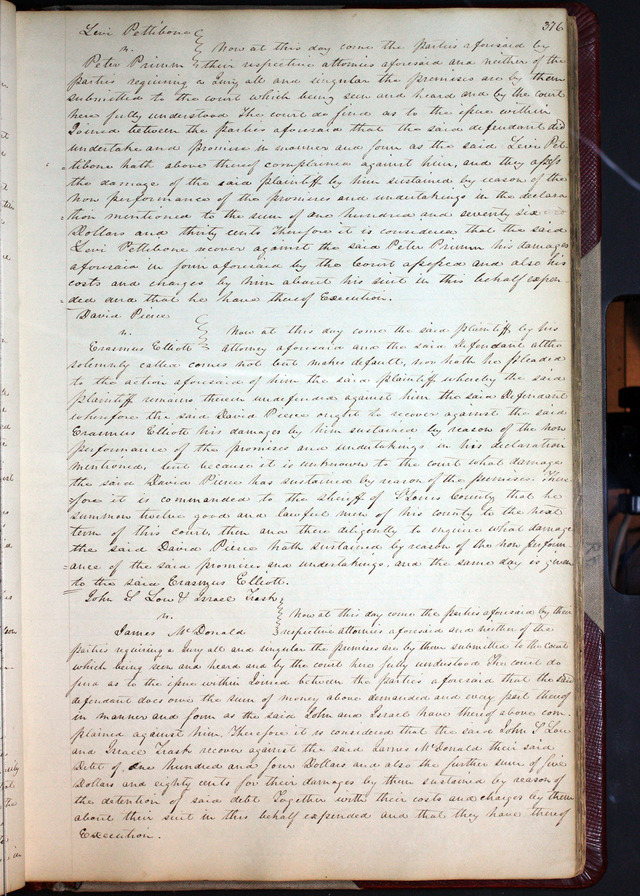 376
Levi Pettibone
vs. Now at this day come the Parties aforesaid by
Peter Primm their respective attornies aforesaid and neither of the
parties requiring a Jury all and singular the premises are by them
submitted to the court which being seen and heard and by the court
here fully understood The court do find as to the issue within
Joined between the parties aforesaid that the said defendant did
undertake and promise in manner and form as the said Levi Pet-
tibone hath above thereof complained against him, and they assess
the damage of the said plaintiff by him sustained by reason of the
non performance of the promises and undertakings in the declara-
tion mentioned to the sum of one hundred and seventy six
Dollars and thirty cents Therefore it is considered that the said
Levi Pettibone recover against the said Peter Primm his damages
aforesaid in form aforesaid by the Court assessed and also his
costs and charges by him about his suit in this behalf expen-
ded and that he have thereof Execution.
David Pierce
vs. Now at this day come the said plaintiff by his
Erasmus Elliott attorney aforesaid and the said Defendant altho
solemnly called comes not but makes default, nor hath he pleaded
to the action aforesaid of him the said plaintiff whereby the said
plaintiff remains therein undefended against him the said Defendant
wherefore the said David Pierce ought to recover against the said
Erasmus Elliott his damages by him sustained by reason of the non
performance of the promises and undertakings in his declaration
mentioned, but because it is unknown to the court what damage
the said David Pierce has sustained by reason of the premises. There-
fore it is commanded to the sheriff of St Louis County that he
summon twelve good and lawful men of his county to the next
term of this court, then and there diligently to enquire what damage
the said David Pierce hath sustained by reason of the non perform
ance of the said promises and undertakings. and the same day is given
to the said Erasmus Elliott.
John S Low & Israel Trask
vs. Now at this day come the parties aforesaid by their
James McDonald respective attornies aforesaid and neither of the
parties requiring a Jury all and singular the premises are by them submitted to the court
which being seen and heard and by the court here fully understood The court do
find as to the issue within Joined between the parties aforesaid that the said
defendant does owe the sum of money above demanded and every part thereof
in manner and form as the said John and Israel have thereof above com-
plained against him. Therefore it is considered that the said John S Low
and Israel Trask recover against the said James McDonald their said
Debt of One hundred and four Dollars and also the further sum of five
Dollars and eighty cents for their damages by them sustained by reason of
the detention of said debt Together with their costs and charges by them
about their suit in this behalf expended and that they have thereof
Execution.